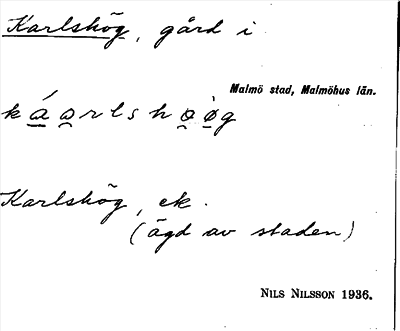 Karlshög, gård i
Malmö stad, Malmöhus län.
Karlshög, ek.
(ägd av staden)
NILS NILSSON 1936.